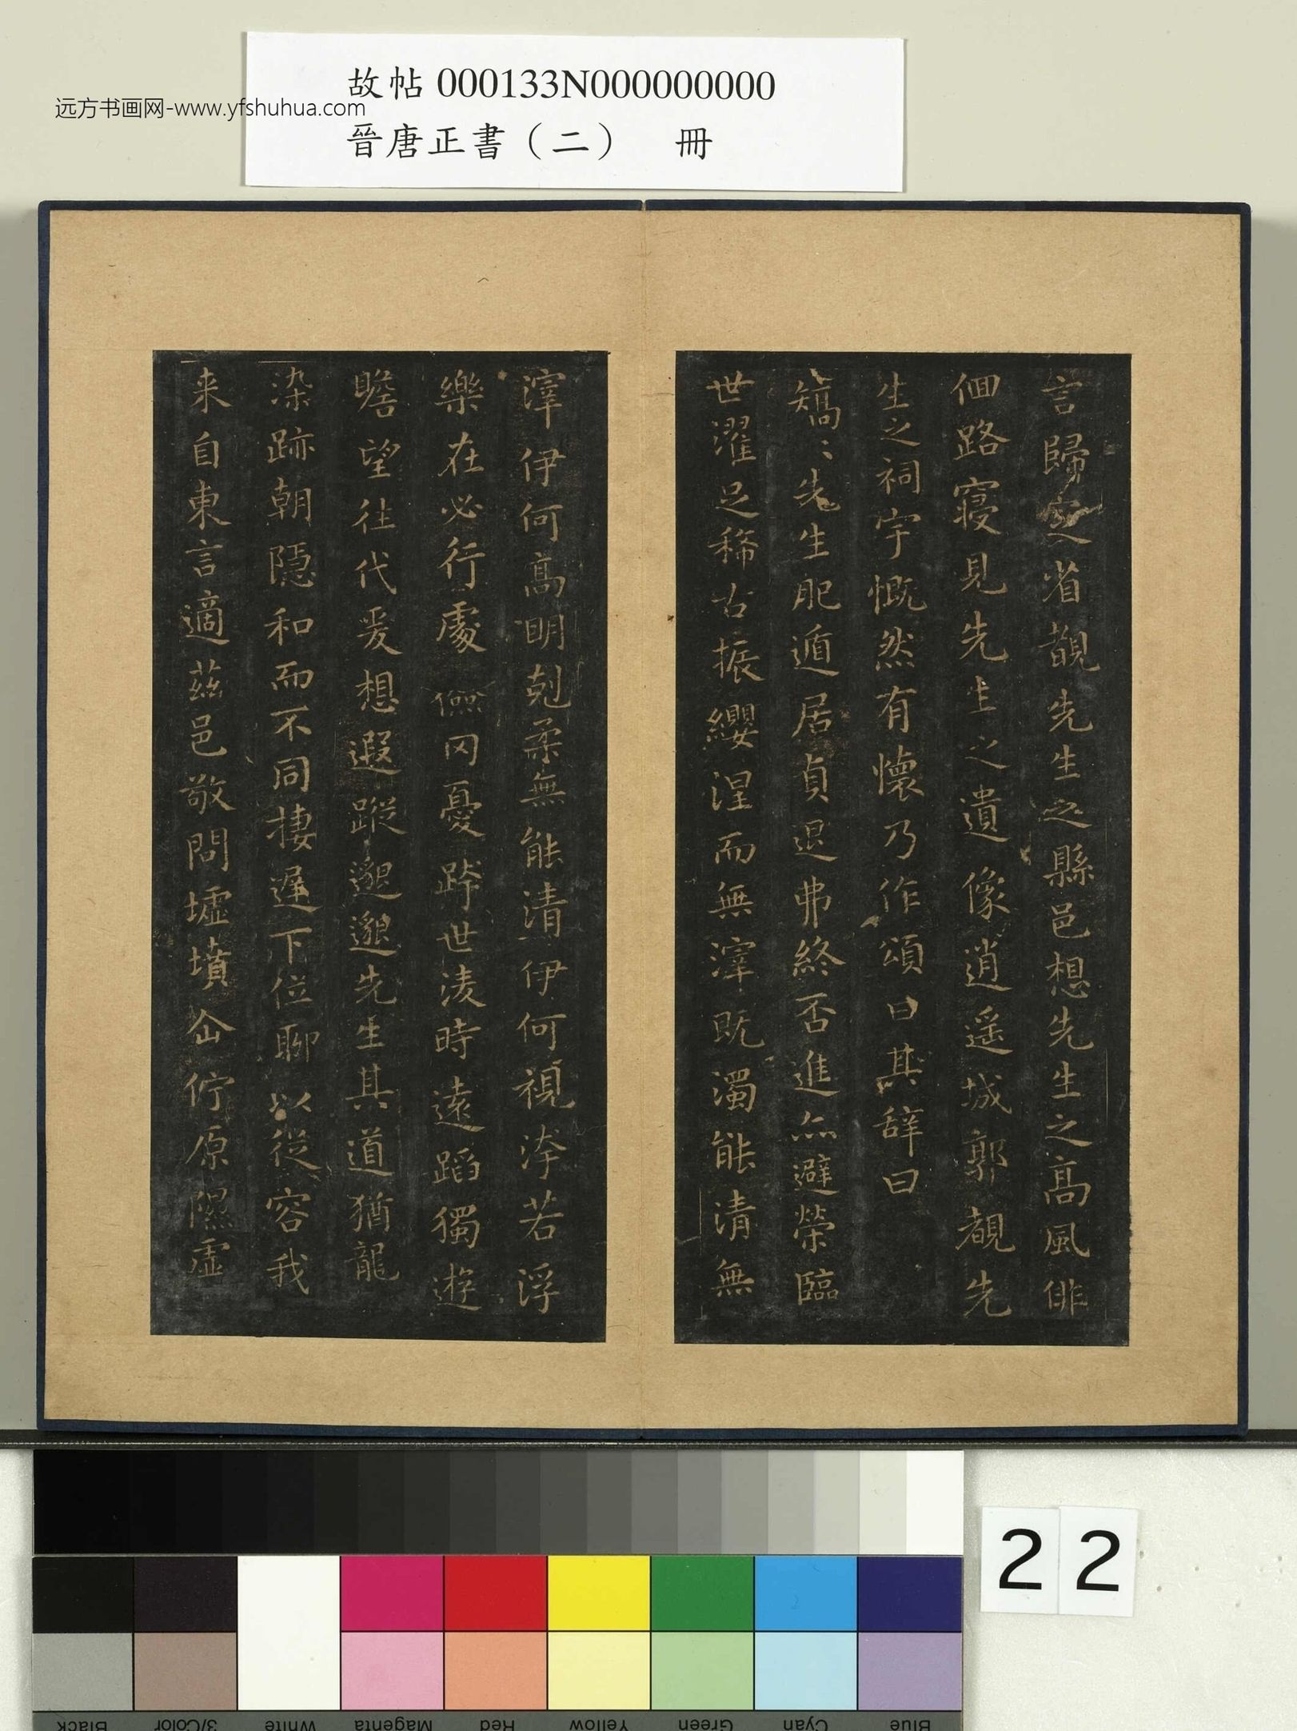 故帖 000133N000000000
远方书画网-www.yfshuhua.com
晉唐正書（二） 冊
言歸定省覩先生之縣邑想先生之高風俳
佪路寢見先生之遺像逍遥城郭覩先
生之祠宇慨然有懷乃作頌曰其辞曰
矯〻先生肥遁居貞退弗終否進亦避榮臨
世濯足稀古振纓涅而無滓既濁能清無
滓伊何高明剋柔無能清伊何視洿若浮
樂在必行處儉罔憂跨世淩時遠蹈獨遊
瞻望往代爰想遐蹤邈邈先生其道猶龍
染跡朝隱和而不同棲遲下位聊以從容我
来自東言適茲邑敬問墟墳企佇原隰虛
22
Black
3/Color
White
Magenta
Red
Yellow
Green
Cyan
Blue